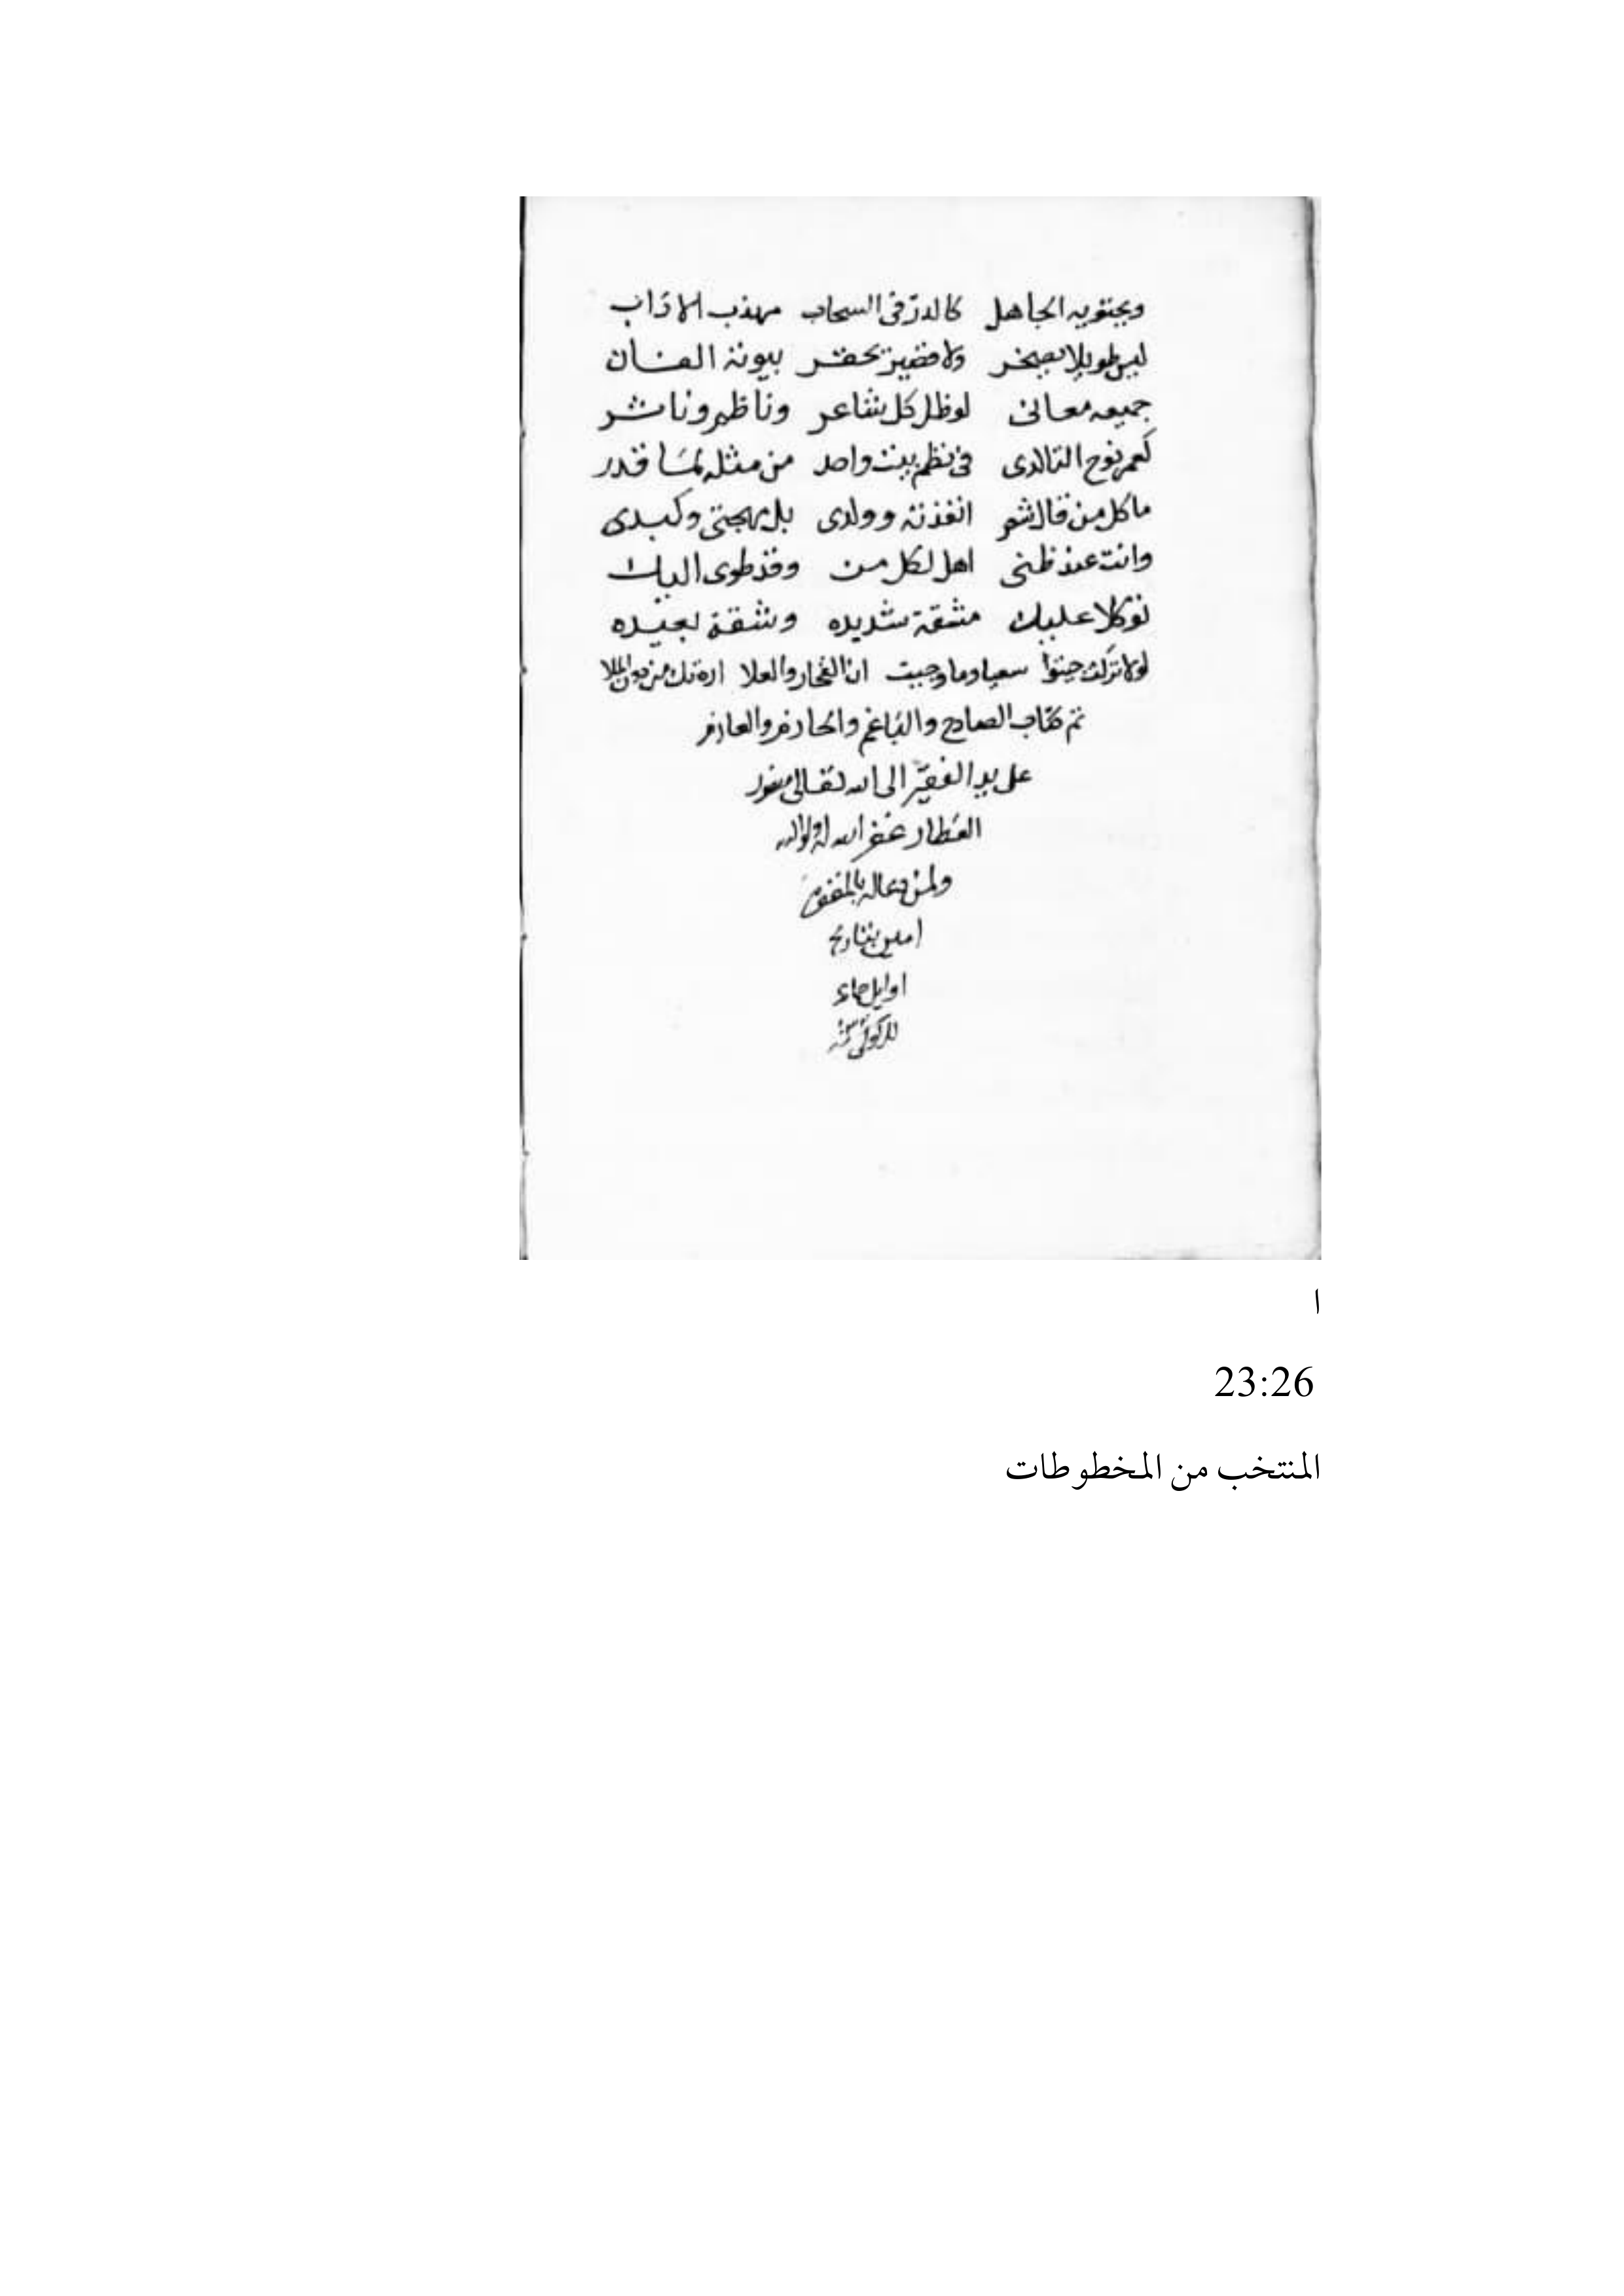 ويجتويه الجاهل كالدر في السحاب مهذب الاداب
ليس طويلا يضجر ولا قصير يحقر بيوته الفان
جميعه معانى لو ظل كل شاعر وناظم وناشر
كعمر نوح التالدى فى نظم بيت واحد من مثله لما قدر
ما كل من قال شعر انفذته وولدى بل مهجتى وكبدى
وانت عند ظنى اهل لكل من وقد طوى اليك
توكلا عليك مشقة شديده وشقة بعيده
لولا تركت سعيا وما ان الفخار والعلا ارثك من دون الملا
تم كتاب الصادح والباغم والحازم والعازم
على يد الفقير الى الله تعالى
العطار غفر الله له ولوالديه
ولمن دعا له بالمغفره
امين بتاريخ
اوايل
ا
23:26
المنتخب من المخطوطات